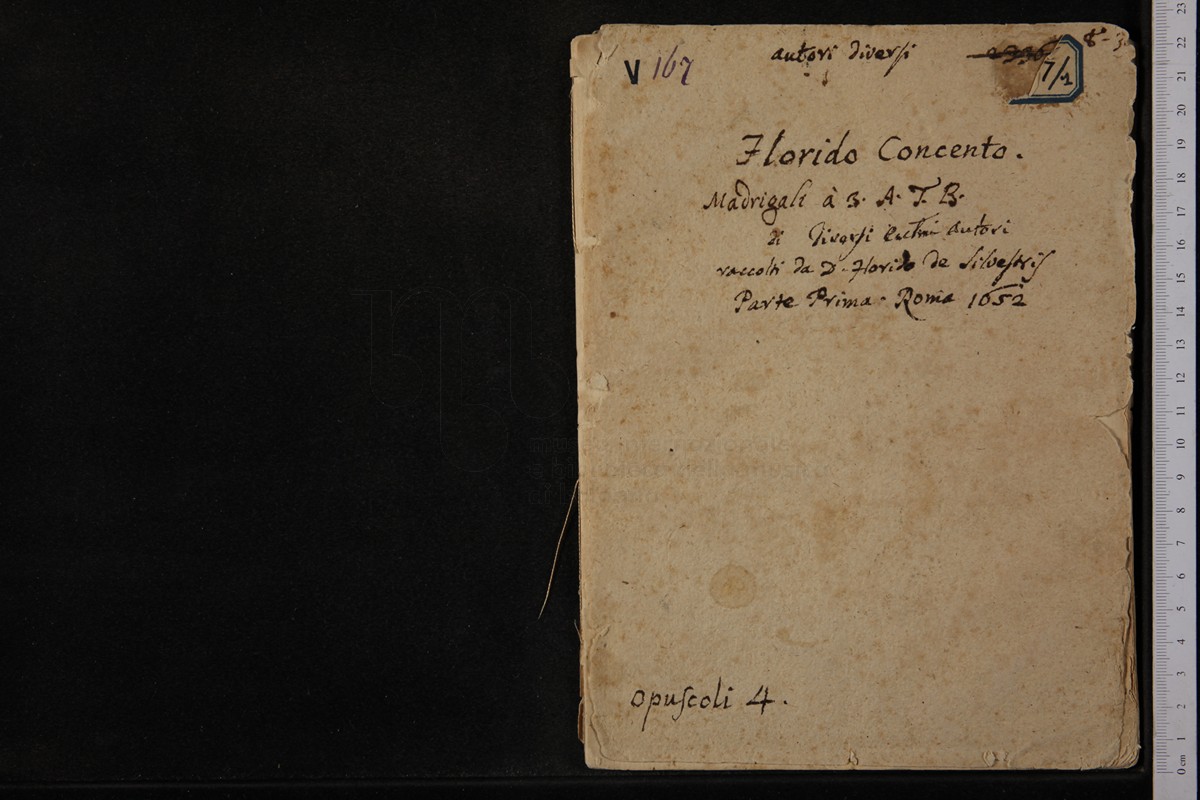 autori diversi
V 167
7/1
8-3
Florido Concento.
Madrigali à 3. A. T. B.
di Diversi autori
raccolti da D. Florido de Silvestris
Parte Prima. Roma 1652
opuscoli 4.
23
22
21
20
19
18
17
16
15
14
13
12
11
10
9
8
7
6
5
4
3
2
1
0 cm